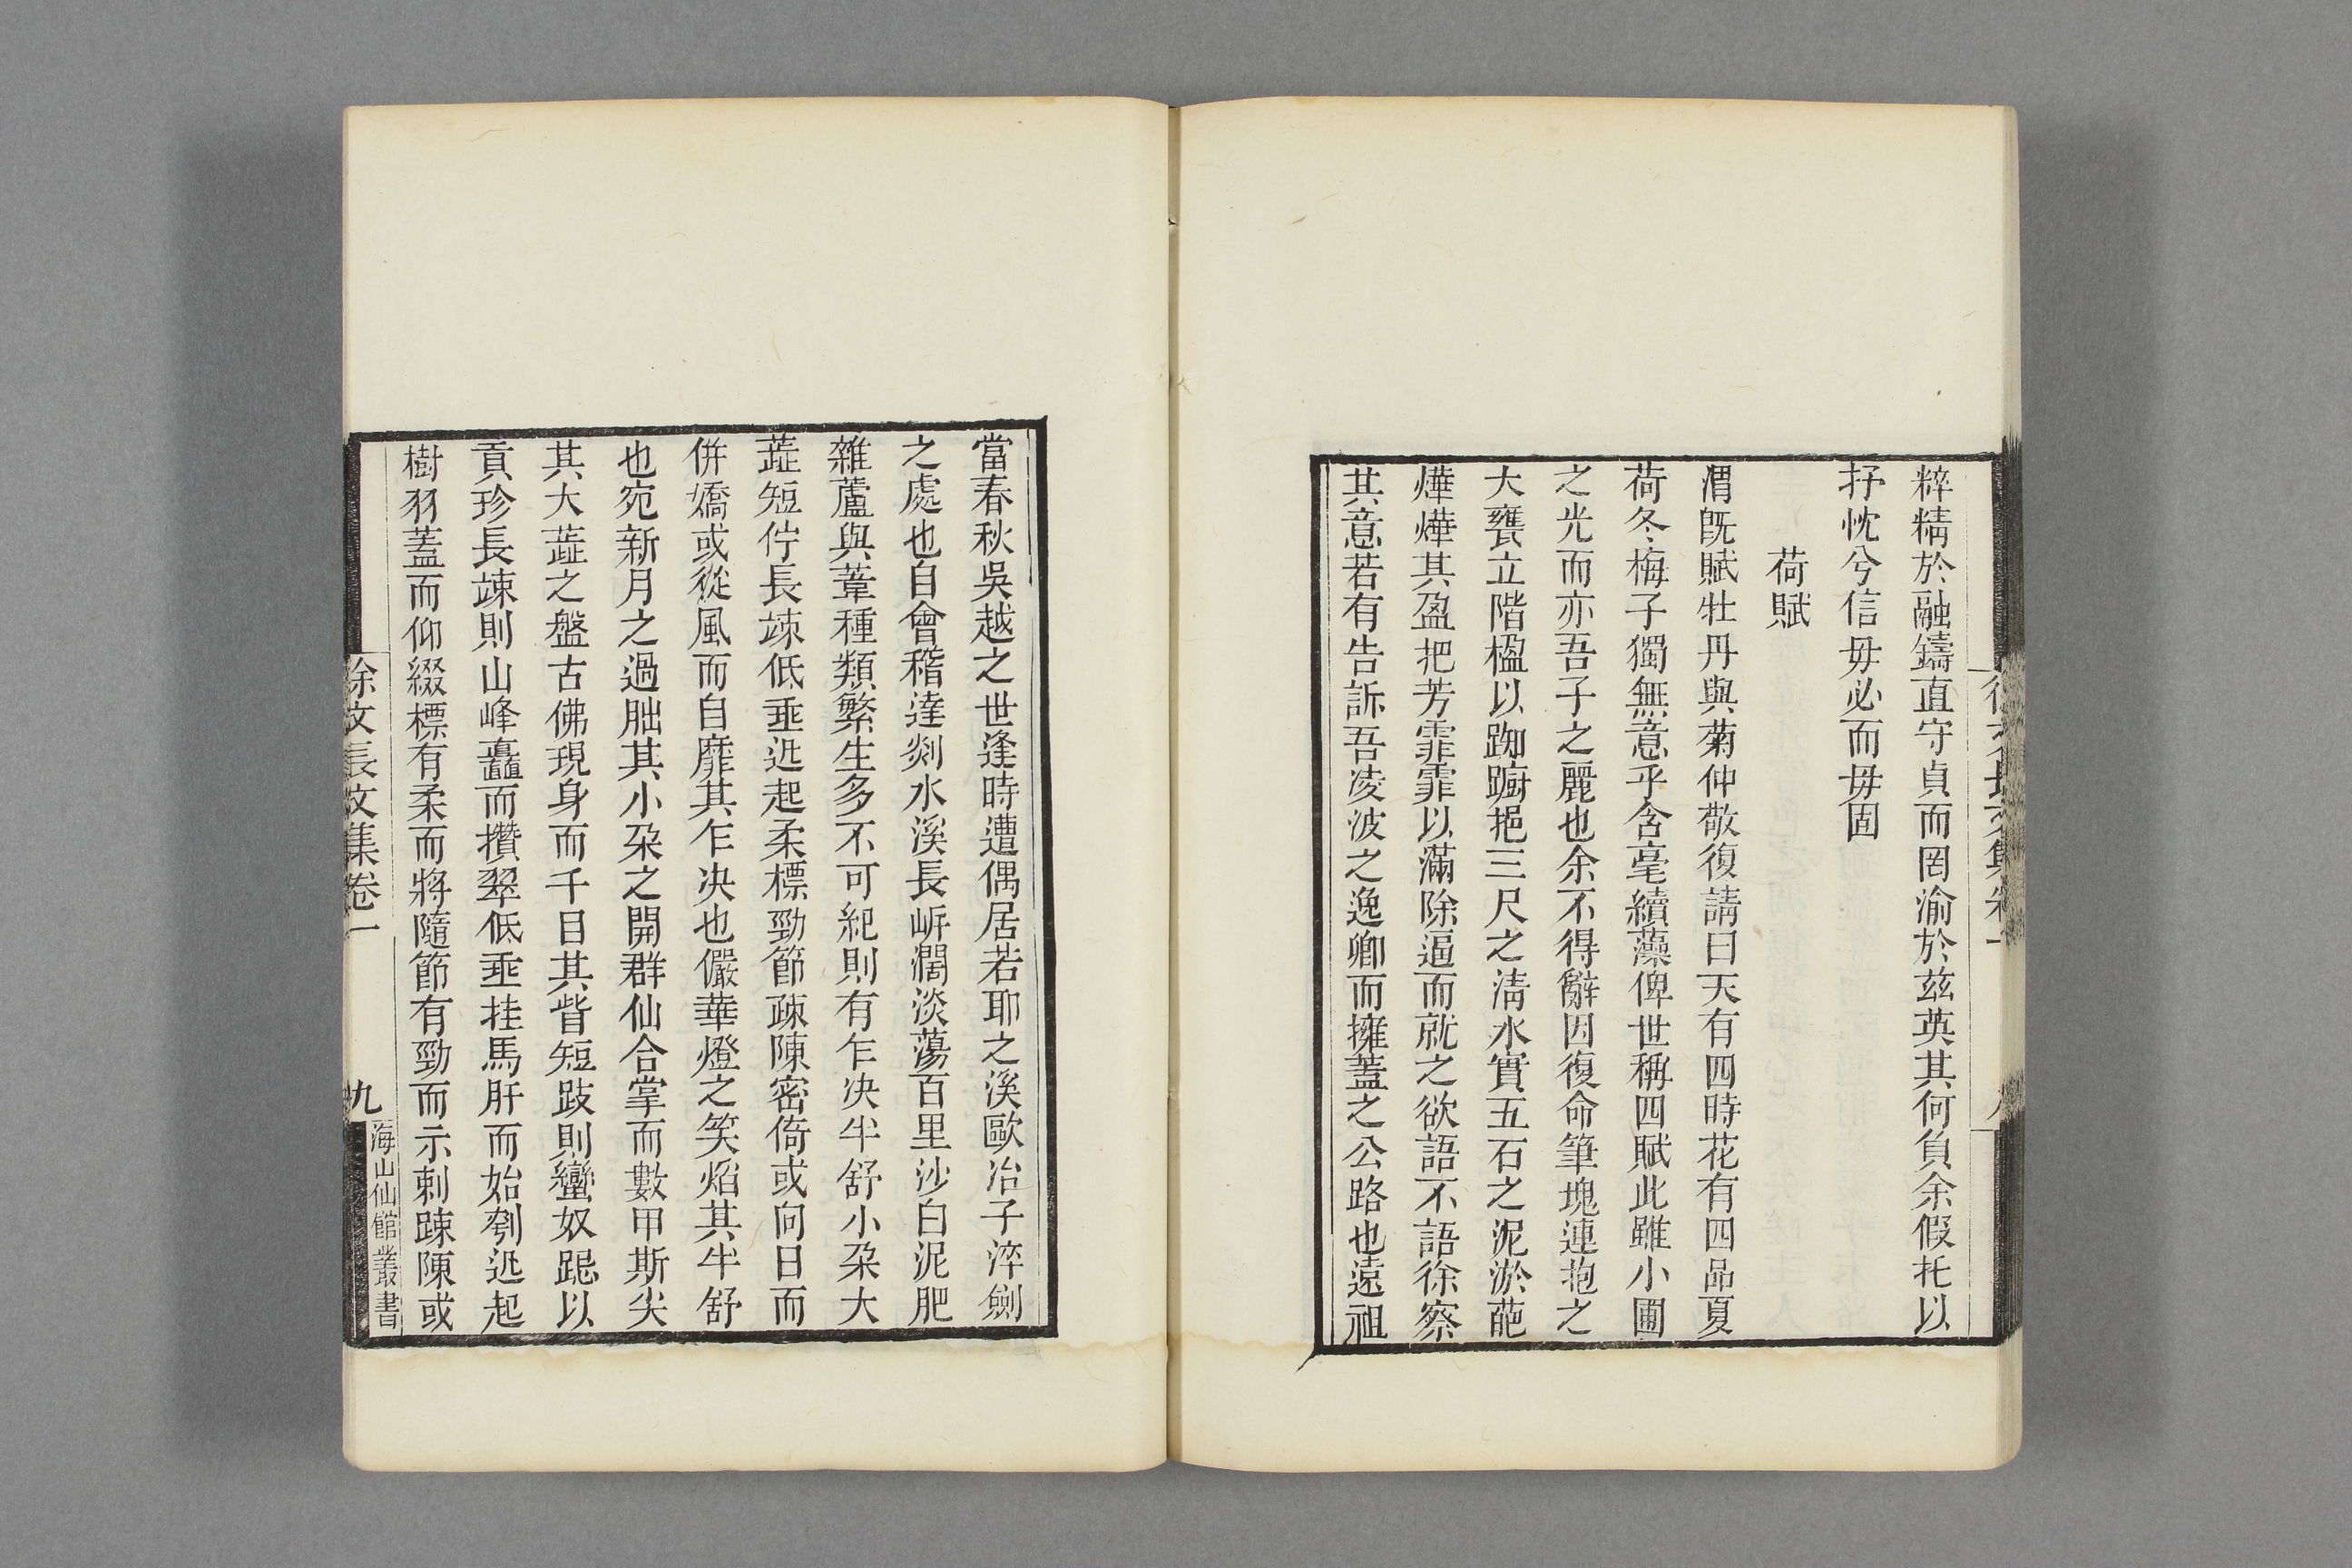 粹精於融鑄直守貞而罔渝於兹英其何負余假托以
抒忱兮信毋必而毋固
荷賦
渭旣賦牡丹與菊仲敬復請曰天有四時花有四品夏
荷冬梅子獨無意乎含毫續藻俾世稱四賦此雖小圃
之光而亦吾子之麗也余不得辭因復命筆塊連抱之
大甕立階楹以踟躕挹三尺之淸水實五石之泥淤葩
燁燁其盈把芳霏霏以滿除逼而就之欲語不語徐察
其意若有告訴吾凌波之逸卿而擁蓋之公路也遠祖
徐文長文集卷一
八
當春秋吳越之世逢時遭偶居若耶之溪歐冶子淬劍
之處也自會稽達剡水溪長㟁濶淡蕩百里沙白泥肥
雜蘆與葦種類繁生多不可紀則有乍决半舒小朶大
蕋短佇長竦低垂迅起柔標勁節疎陳密倚或向日而
併嬌或從風而自靡其乍决也儼華燈之笑焰其半舒
也宛新月之過朏其小朶之開群仙合掌而數甲斯尖
其大蕋之盤古佛現身而千目其眥短跂則蠻奴跽以
貢珍長竦則山峰矗而攢翠低垂挂馬肝而始刳迅起
樹羽蓋而仰綴標有柔而將隨節有勁而示刺踈陳或
徐文長文集卷一
九
海山仙館叢書